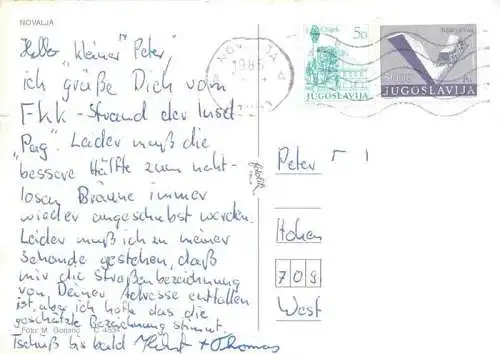 NOVALJA
Hallo "kleiner" Peter,
ich grüße Dich vom
FKK-Strand der Insel
"Pag". Leider muß die
bessere Hälfte zum naht-
losen Bräune immer
wieder angeschubst werden.
Leider muß ich zu meiner
Schande gestehen, daß
mir die Straßenbezeichnung
von Deiner Adresse entfallen
ist, aber ich hoffe das die
geschätzte Bezeichnung stimmt.
Tschüß bis bald + Thomas
Foto: M.
NOVALJA
1986
Osijek 50
JUGOSLAVIJA
JUGOSLAVIJA
Peter
Hohen
709
West